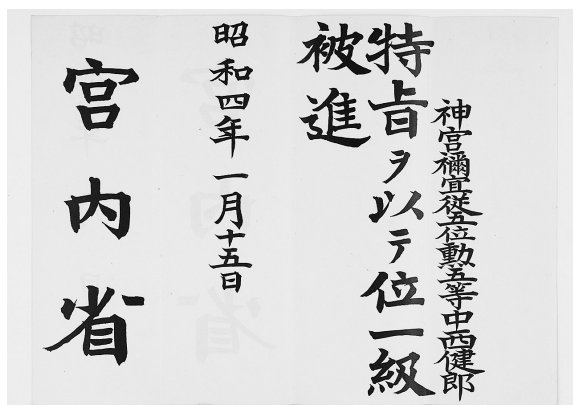 神宮禰宜従五位勲五等中西健郎
特旨ヲ以テ位一級
被進
昭和四年一月十五日
宮内省